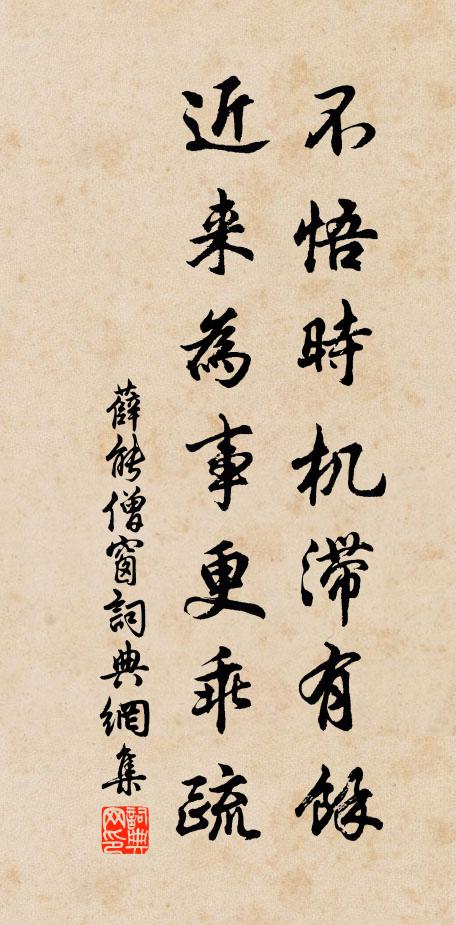 不悟時机滞有餘
近来為事更乖疏
薛能僧窗詞典網集
詞典网印